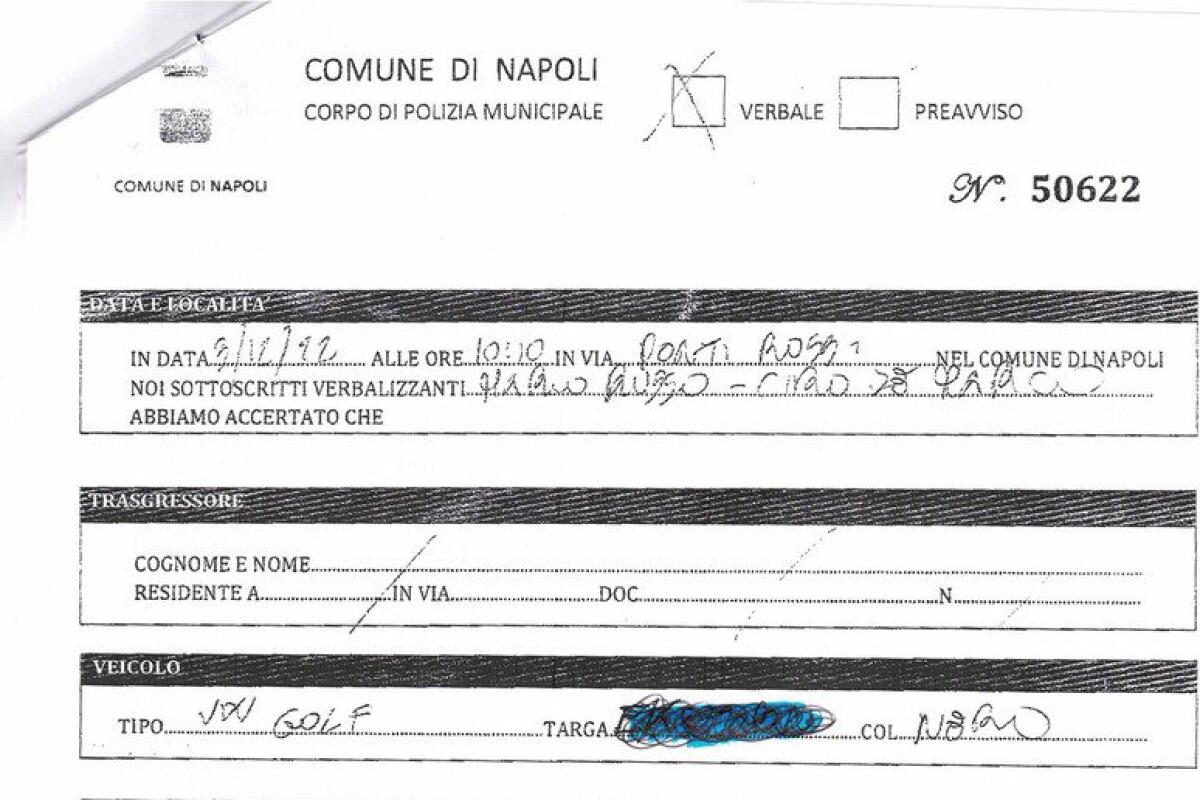 COMUNE DI NAPOLI
CORPO DI POLIZIA MUNICIPALE
VERBALE
PREAVVISO
COMUNE DI NAPOLI
N°. 50622
DATA E LOCALITA'
IN DATA 9/12/92 ALLE ORE 10:10 IN VIA PONTI ROSSI NEL COMUNE DI NAPOLI
NOI SOTTOSCRITTI VERBALIZZANTI MARIO RUSSO - CIRO DE
ABBIAMO ACCERTATO CHE
TRASGRESSORE
COGNOME E NOME
RESIDENTE A IN VIA DOC N
VEICOLO
TIPO VW GOLF TARGA COL NERO